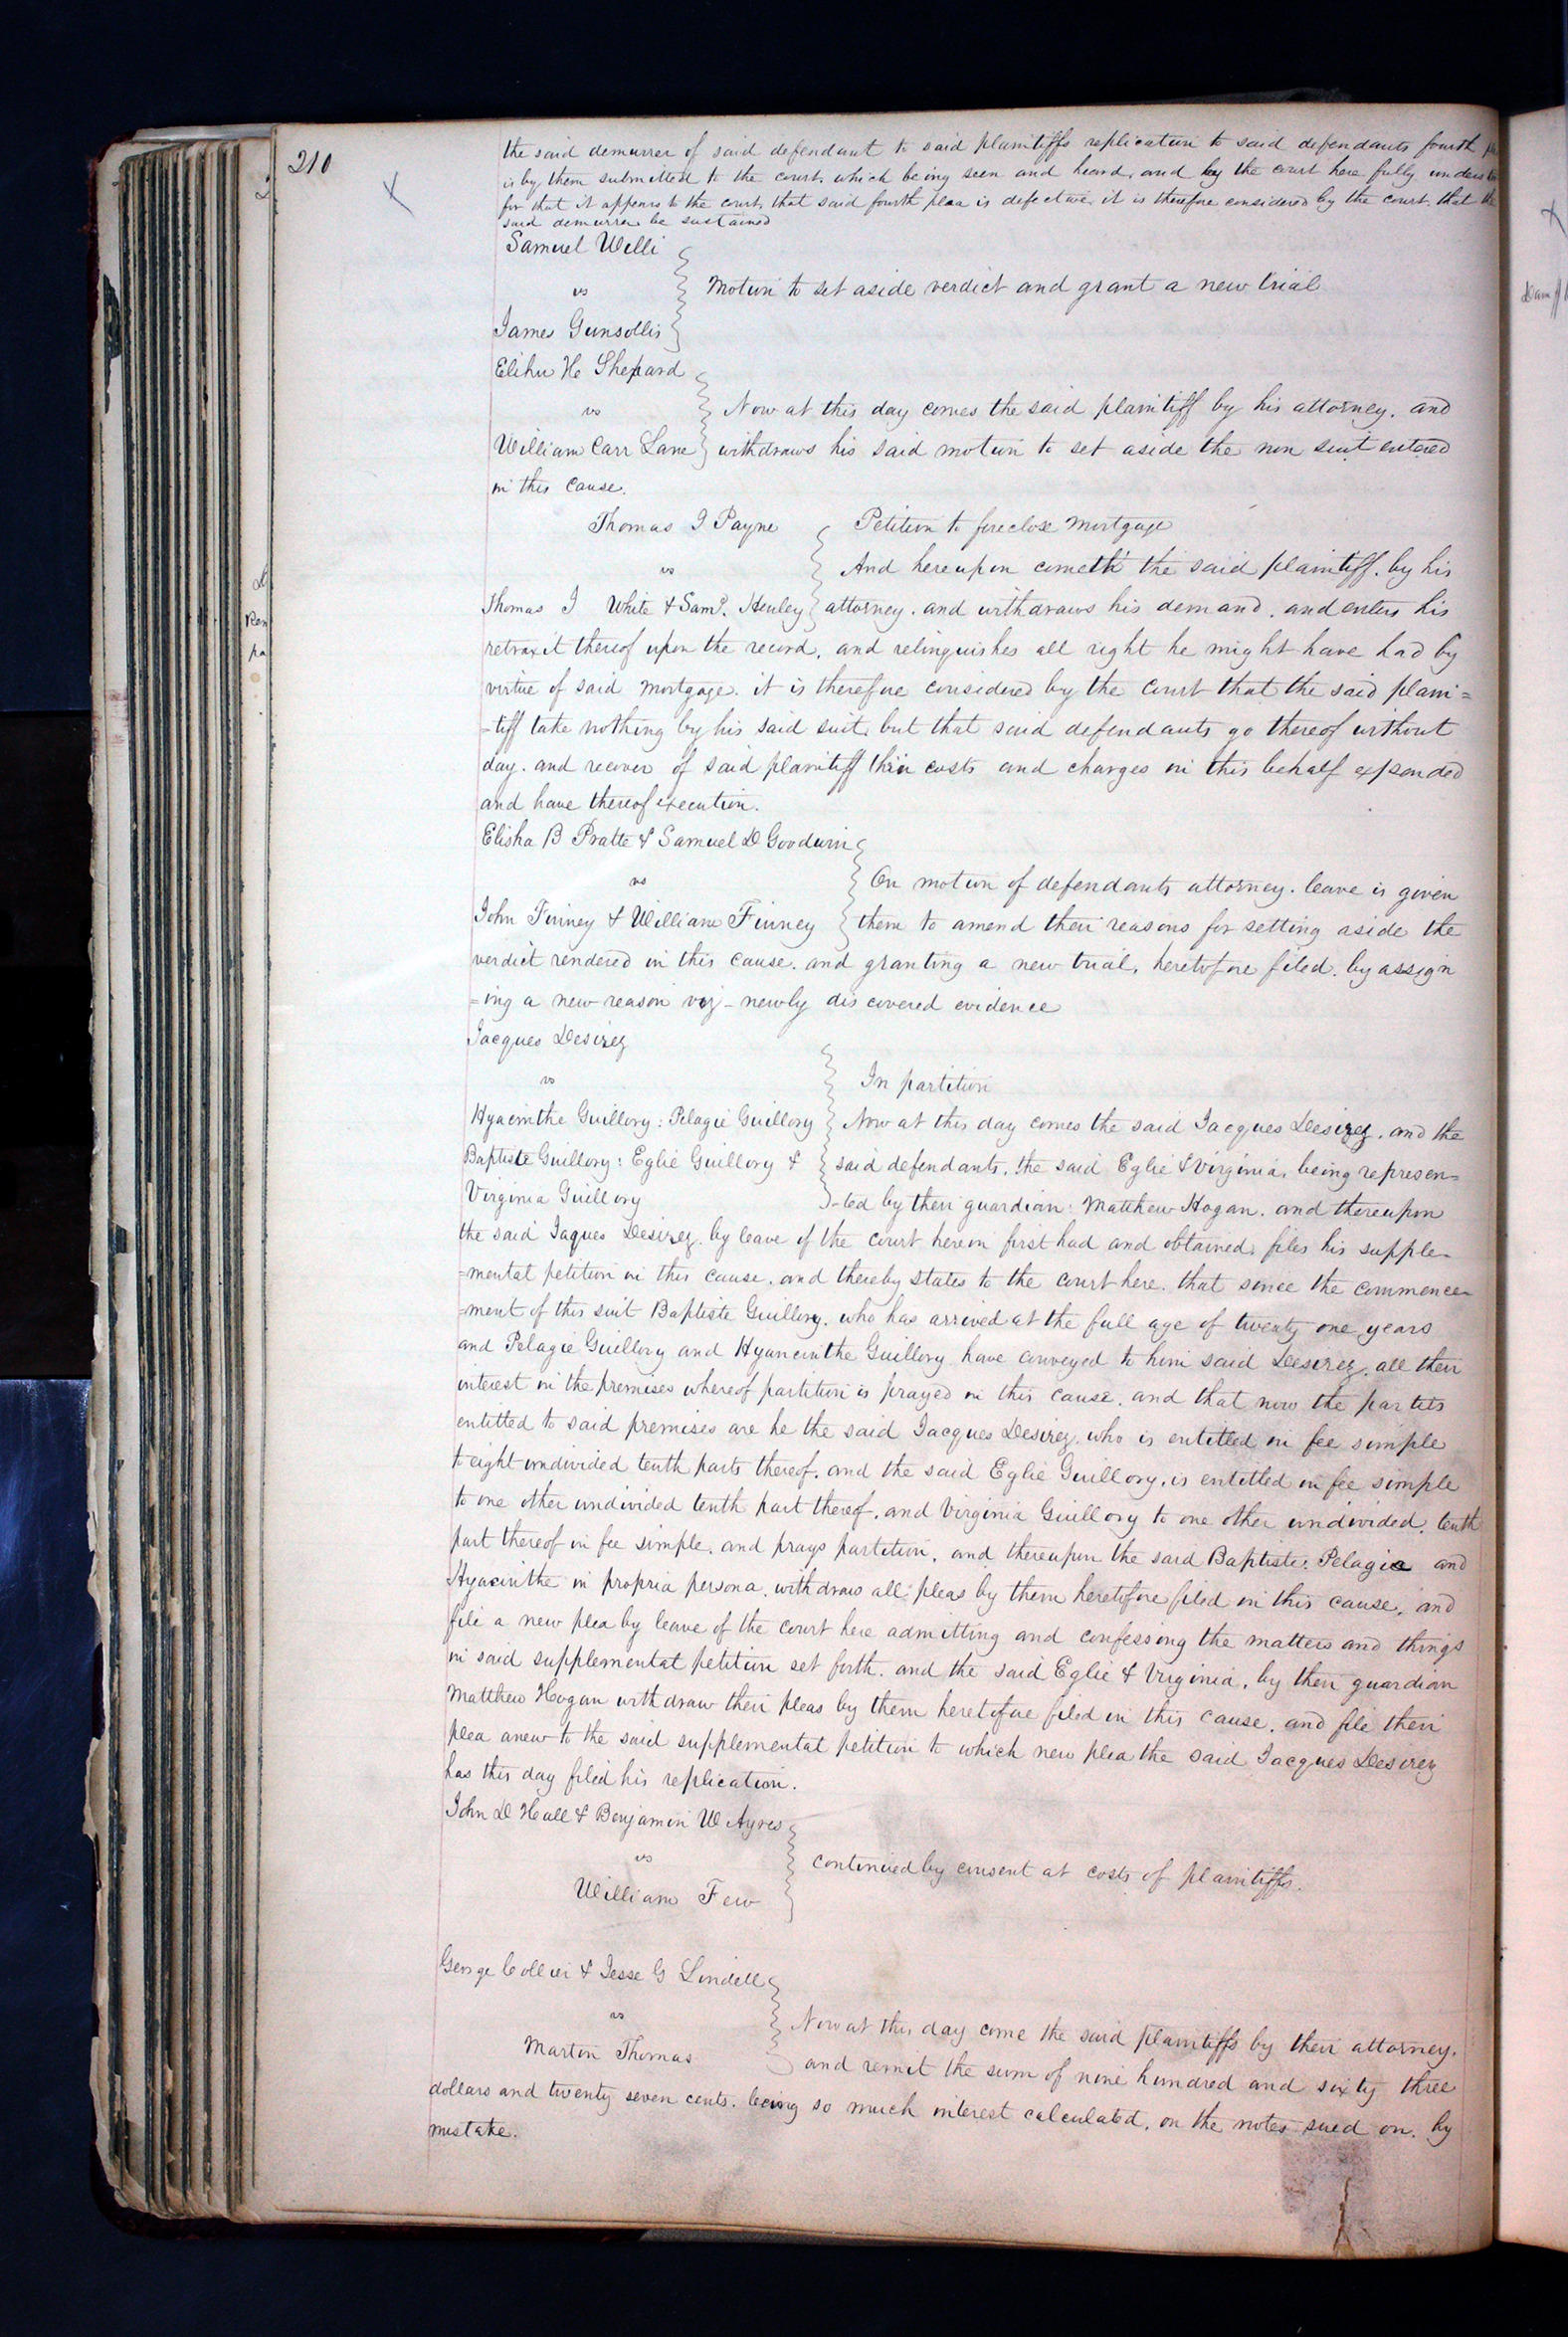 210
the said demurrer of said defendant to said plaintiffs replication to said defendants fourth
is by them submitted to the court, which being seen and heard, and by the court here fully
for that it appears to the court, that said fourth plea is defective, it is therefore considered by the court, that the
said demurrer be sustained
Samuel Willi
vs
Motion to set aside verdict and grant a new trial
James Gunsollis
Elihu H Shepard
vs
Now at this day comes the said plaintiff by his attorney, and
William Carr Lane withdraws his said motion to set aside the non suit entered
in this cause.
Thomas J Payne Petition to foreclose mortgage
vs And hereupon cometh the said plaintiff, by his
Thomas J White & Saml. Henley attorney, and withdraws his demand, and enters his
retraxit thereof upon the record, and relinquishes all right he might have had by
virtue of said mortgage. it is therefore considered by the court that the said plain=
=tiff take nothing by his said suit, but that said defendants go thereof without
day. and recover of said plaintiff their costs and charges in this behalf expended
and have thereof execution.
Elisha B Pratte & Samuel D Goodwin
vs On motion of defendants attorney. leave is given
John Finney & William Finney them to amend their reasons for setting aside the
verdict rendered in this cause. and granting a new trial, heretofore filed. by assign
=ing a new reason viz - newly discovered evidence
Jacques Desirez
vs In partition
Hyacinthe Guillory: Pelagie Guillory Now at this day comes the said Jacques Desirez, and the
Baptiste Guillory: Eglie Guillory & said defendants, the said Eglie & Virginia, being represen=
Virginia Guillory -ted by their guardian: Matthew Hogan. and thereupon
the said Jaques Desirez. by leave of the court herein first had and obtained, files his supple=
=mental petition in this cause, and thereby states to the court here. that since the commence=
=ment of this suit Baptiste Guillory. who has arrived at the full age of twenty one years
and Pelagie Guillory and Hyancinthe Guillory have conveyed to him said Desirez, all their
interest in the premises whereof partition is prayed in this cause. and that now the parties
entitled to said premises are he the said Jacques Desirez. who is entitled in fee simple
to eight undivided tenth parts thereof. and the said Eglie Guillory, is entitled in fee simple
to one other undivided tenth part thereof. and Virginia Guillory to one other undivided tenth
part thereof in fee simple. and prays partition, and thereupon the said Baptiste: Pelagie and
Hyacinthe in propria persona, withdraw all pleas by them heretofore filed in this cause, and
file a new plea by leave of the court here admitting and confessong the matters and things
in said supplemental petition set forth. and the said Eglie & Virginia, by their guardian
Matthew Hogan withdraw their pleas by them heretofore filed in this cause. and file their
plea anew to the said supplemental petition to which new plea the said Jacques Desirez
has this day filed his replication.
John D Hall & Benjamin W Ayres
vs continued by consent at costs of plaintiffs.
William Few
George Collier & Jesse G Lindell
vs Now at this day come the said plaintiffs by their attorney.
Martin Thomas and remit the sum of nine hundred and sixty three
dollars and twenty seven cents. being so much interest calculated, on the notes sued on. by
mistake.